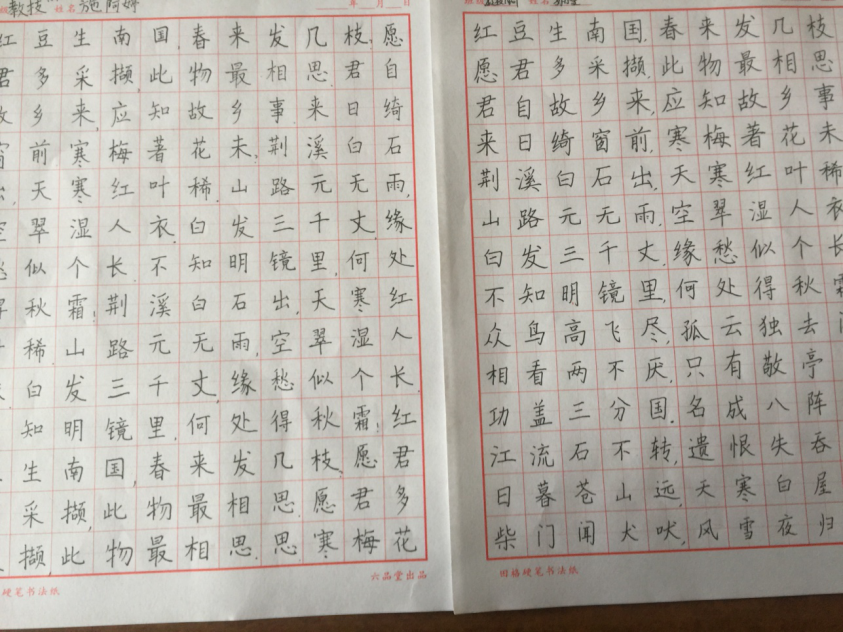 教技 姓名 施阿婷 年 月 日
红豆生南国,春来发几枝,愿
君多采撷,此物最相思.君自
故乡来,应知故乡事.来日绮
窗前,寒梅著花未,荆溪白石
出,天寒红叶稀.山路元无雨,
空翠湿人衣.白发三千丈,缘
愁似个长.不知明镜里,何处
得秋霜!荆溪白石出,天寒红
叶稀.山路元无雨,空翠湿人
衣.白发三千丈,缘愁似个长.
知明镜里,何处得秋霜!红
生南国,春来发几枝,愿君
采撷,此物最相思.愿君多
撷此物最相思.思.寒梅花
硬笔书法纸 六品堂出品
姓名
红豆生南国,春来发几枝
愿君多采撷,此物最相思
君自故乡来,应知故乡事
来日绮窗前,寒梅著花未
荆溪白石出,天寒红叶稀
山路元无雨,空翠湿人衣
白发三千丈,缘愁似个长
不知明镜里,何处得秋霜
众鸟高飞尽,孤云独去
相看两不厌,只有敬亭
功盖三分国,名成八阵
江流石不转,遗恨失吞
日暮苍山远,天寒白屋
柴门闻犬吠,风雪夜归
田格硬笔书法纸